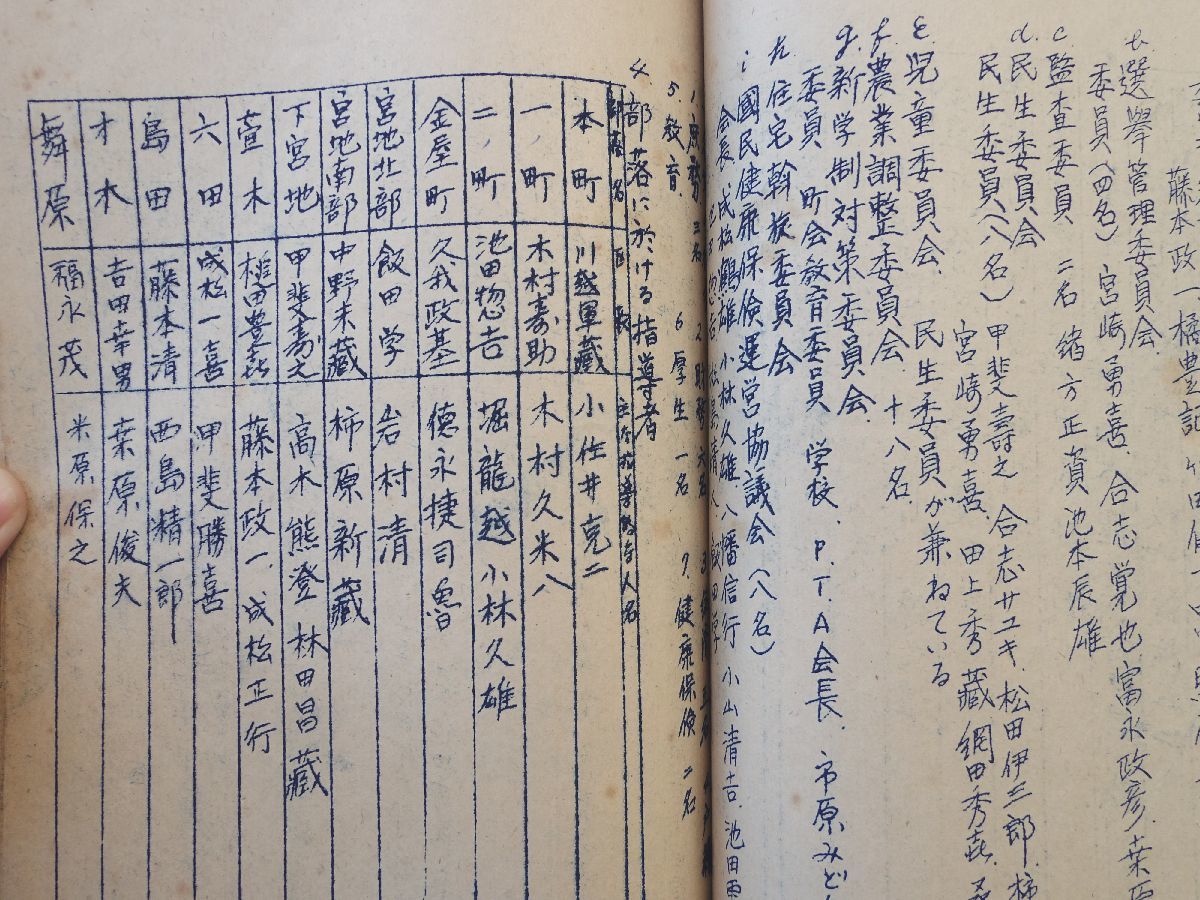 藤本政一
b. 選挙管理委員会.
委員(四名) 宮崎勇喜. 合志覚也 富永政彦.
c 監査委員 二名 緒方正資 池本辰雄
d. 民生委員会
民生委員(八名) 甲斐壽之 合志サユキ. 松田伊三郎.
宮崎勇喜. 田上秀藏 網田秀喜.
e. 児童委員会. 民生委員が兼ねている
f. 農業調整委員会 十八名.
g. 新学制対策委員会.
委員 町会教育委員 学校. P.T.A会長. 市原みど
h. 住宅斡旋委員会
i 國民健康保険運営協議会(八名)
会長 成松鶴雄 小林久雄 八幡信行 小山清吉. 池田
5. 教育. 6 厚生 一名 7. 健康保険 二名
4 部落に於ける指導者
部落名
本町 川越軍藏 小佐井克二
一ノ町 木村寿助 木村久米八
二ノ町 池田惣吉 堀龍越 小林久雄
金屋町 久我政基 德永捷司魯
宮地北部 飯田学 岩村清
宮地南部 中野末藏 柿原新藏
下宮地 甲斐寿之 高木熊澄 林田昌藏
萱木 槌田豊喜 藤本政一. 成松正行
六田 成松一喜 甲斐勝喜
島田 藤本清 西島精一郎
才木 吉田幸男 桒原俊夫
舞原 福永茂 米原保之